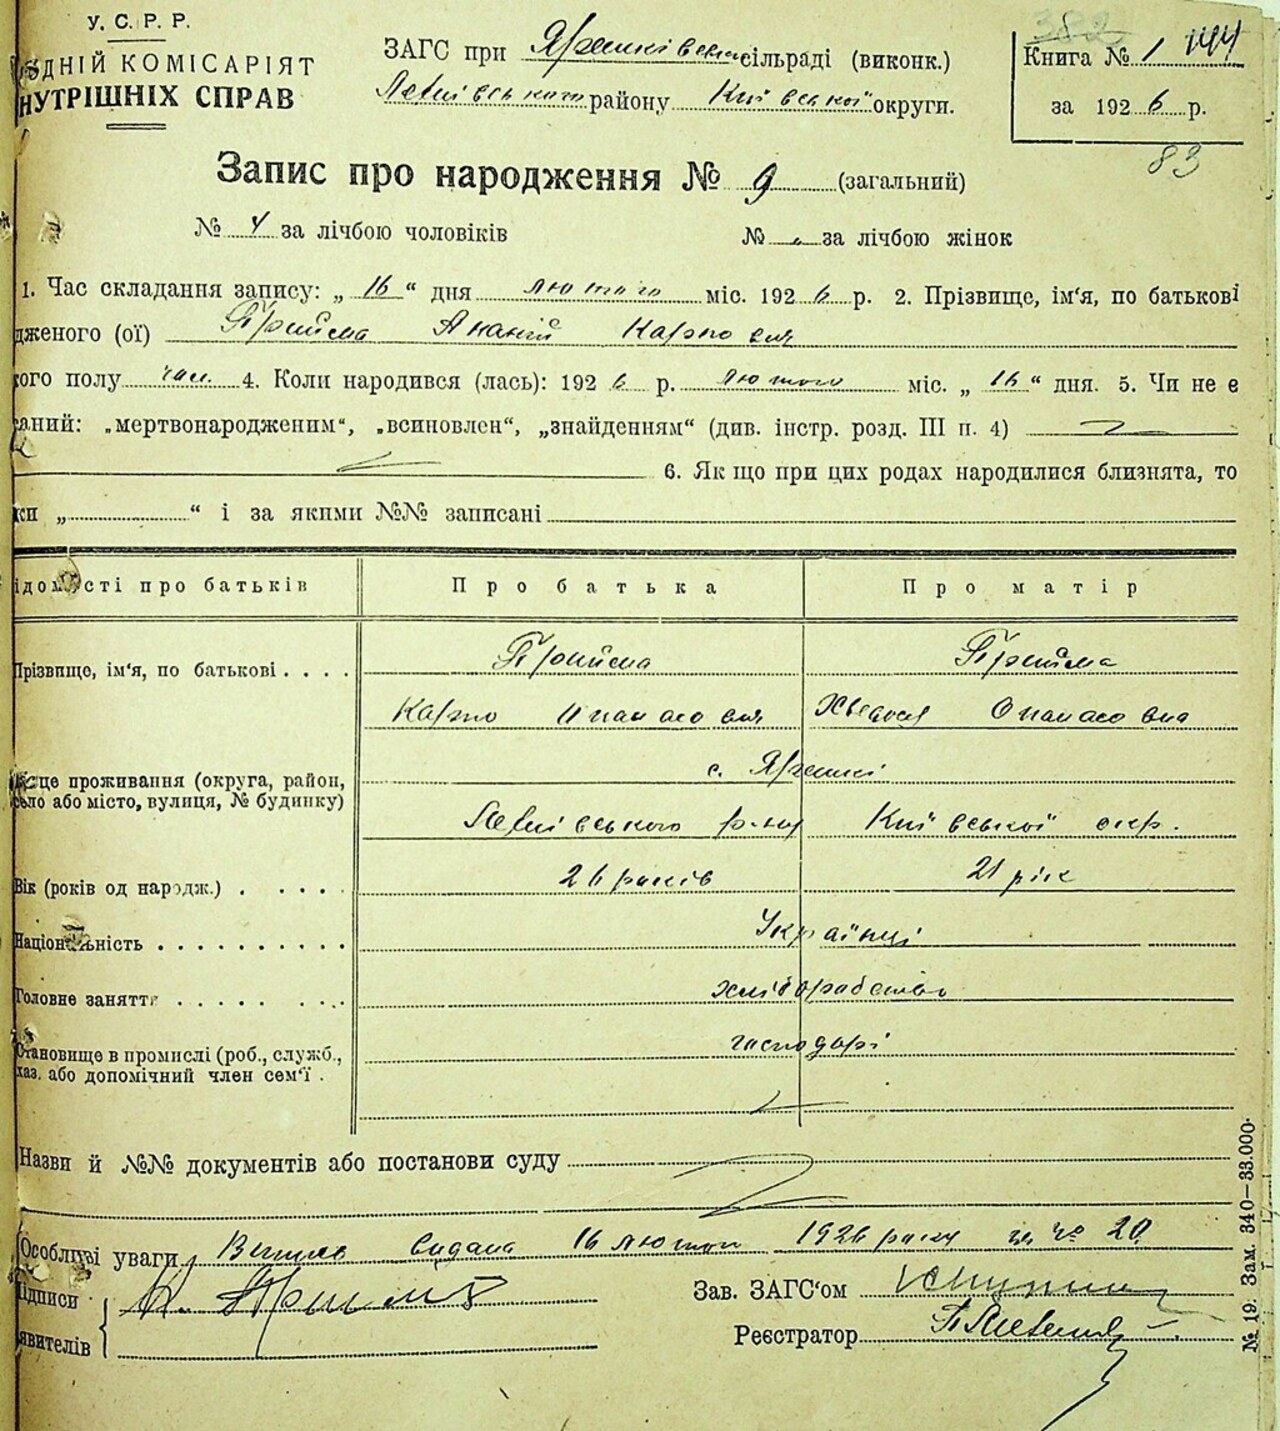 У. С. Р. Р.
ДНІЙ КОМІСАРІЯТ
НУТРІШНІХ СПРАВ
ЗАГС при сільраді (виконк.)
району Київської округи.
382
Книга № 1 144
за 1926 р.
83
Запис про народження № 9 (загальний)
№ 4 за лічбою чоловіків № „ за лічбою жінок
1. Час складання запису: „ 16 “ дня лютого міс. 1926 р. 2. Прізвище, ім‘я, по батькові
дженого (ої) Прийма Ананій Карпович
ого полу чол. 4. Коли народився (лась): 1926 р. лютого міс. „ 16 “ дня. 5. Чи не є
аний: „мертвонародженим“, „всиновлен“, „знайденням“ (див. інстр. розд. III п. 4)
6. Як що при цих родах народилися близнята, то
ки „ “ і за якими №№ записані
ідомості про батьків Про батька Про матір
Прізвище, ім‘я, по батькові . . . . Прийма Прийма
Карпо Опанасович Хведося Опанасовна
це проживання (округа, район,
ело або місто, вулиця, № будинку)
с.
р-ну Київської окр.
Вік (років од народж.) . . . . . 26 років 21 рік
Національність . . . . . . . . . . Українці
Головне заняття . . . . . . . . . хліборобство
Становище в промислі (роб., служб.,
хаз. або допомічний член сем‘ї . господарі
Назви й №№ документів або постанови суду
Особливі уваги видана 16 лютого 1926 року за № 20
ідписи
явителів
К. Прийма
Зав. ЗАГС‘ом
Реєстратор
№ 19. Зам. 340—33.000.